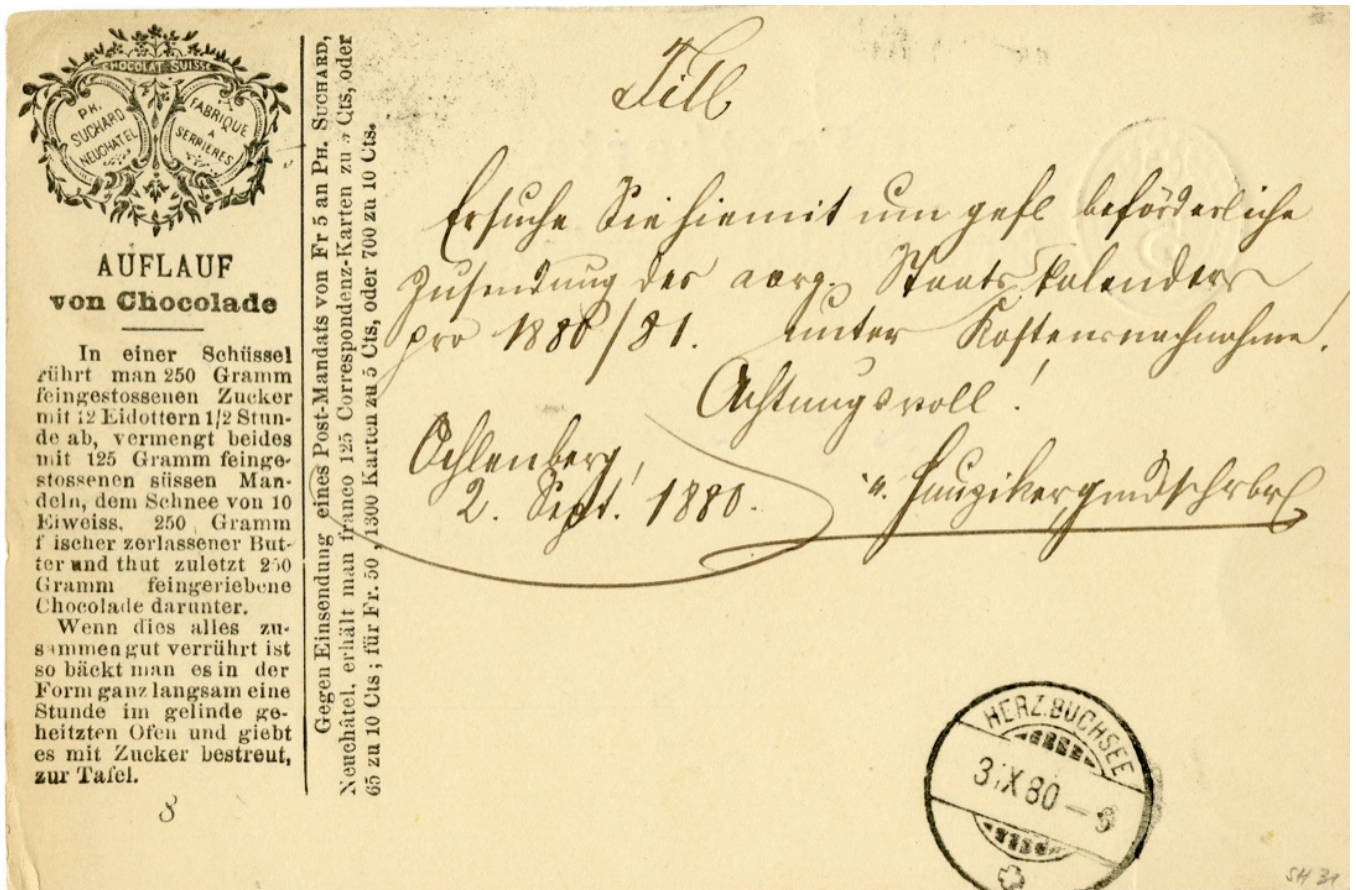 CHOCOLAT SUISSE
PH.
SUCHARD
NEUCHATEL
FABRIQUE
A
SERRIÈRES
AUFLAUF
von Chocolade
In einer Schüssel
rührt man 250 Gramm
feingestossenen Zucker
mit 12 Eidottern 1/2 Stun-
de ab, vermengt beides
mit 125 Gramm feinge-
stossenen süssen Man-
deln, dem Schnee von 10
Eiweiss, 250 Gramm
f ischer zerlassener But-
ter und thut zuletzt 250
Gramm feingeriebene
Chocolade darunter.
Wenn dies alles zu-
sammen gut verrührt ist
so bäckt man es in der
Form ganz langsam eine
Stunde im gelinde ge-
heitzten Ofen und giebt
es mit Zucker bestreut,
zur Tafel.
8
Gegen Einsendung eines Post-Mandats von Fr 5 an PH. SUCHARD,
Neuchâtel, erhält man franco 125 Correspondenz-Karten zu 5 Cts, oder
65 zu 10 Cts; für Fr. 50, 1300 Karten zu 5 Cts, oder 700 zu 10 Cts.
Titl
Ersuche Sie hiemit um gefl beförderliche
Zusendung des aarg. Staatskalenders
pro 1880/81. unter Kostensnachnahme.
Achtungsvoll!
Ochlenberg,
2. Sept. 1880.
Hunziker, gmdschrbr
HERZ.BUCHSEE
3.IX 80 – 8
SH 31